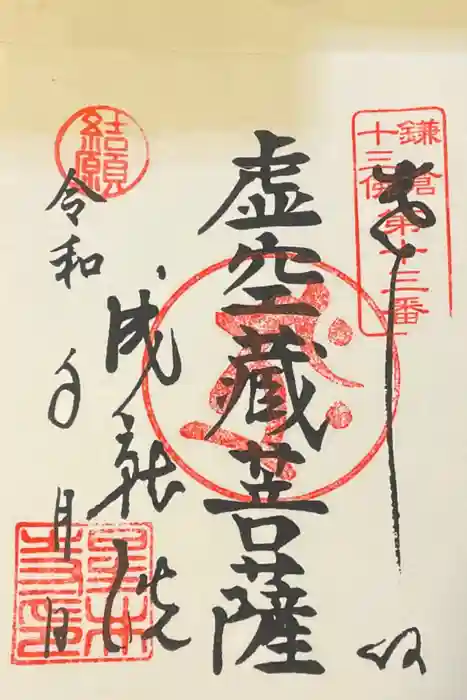 奉拝
鎌倉
十三佛
第十三番
虚空蔵菩薩
成就院
結願
令和 年 月 日
星井
寺印